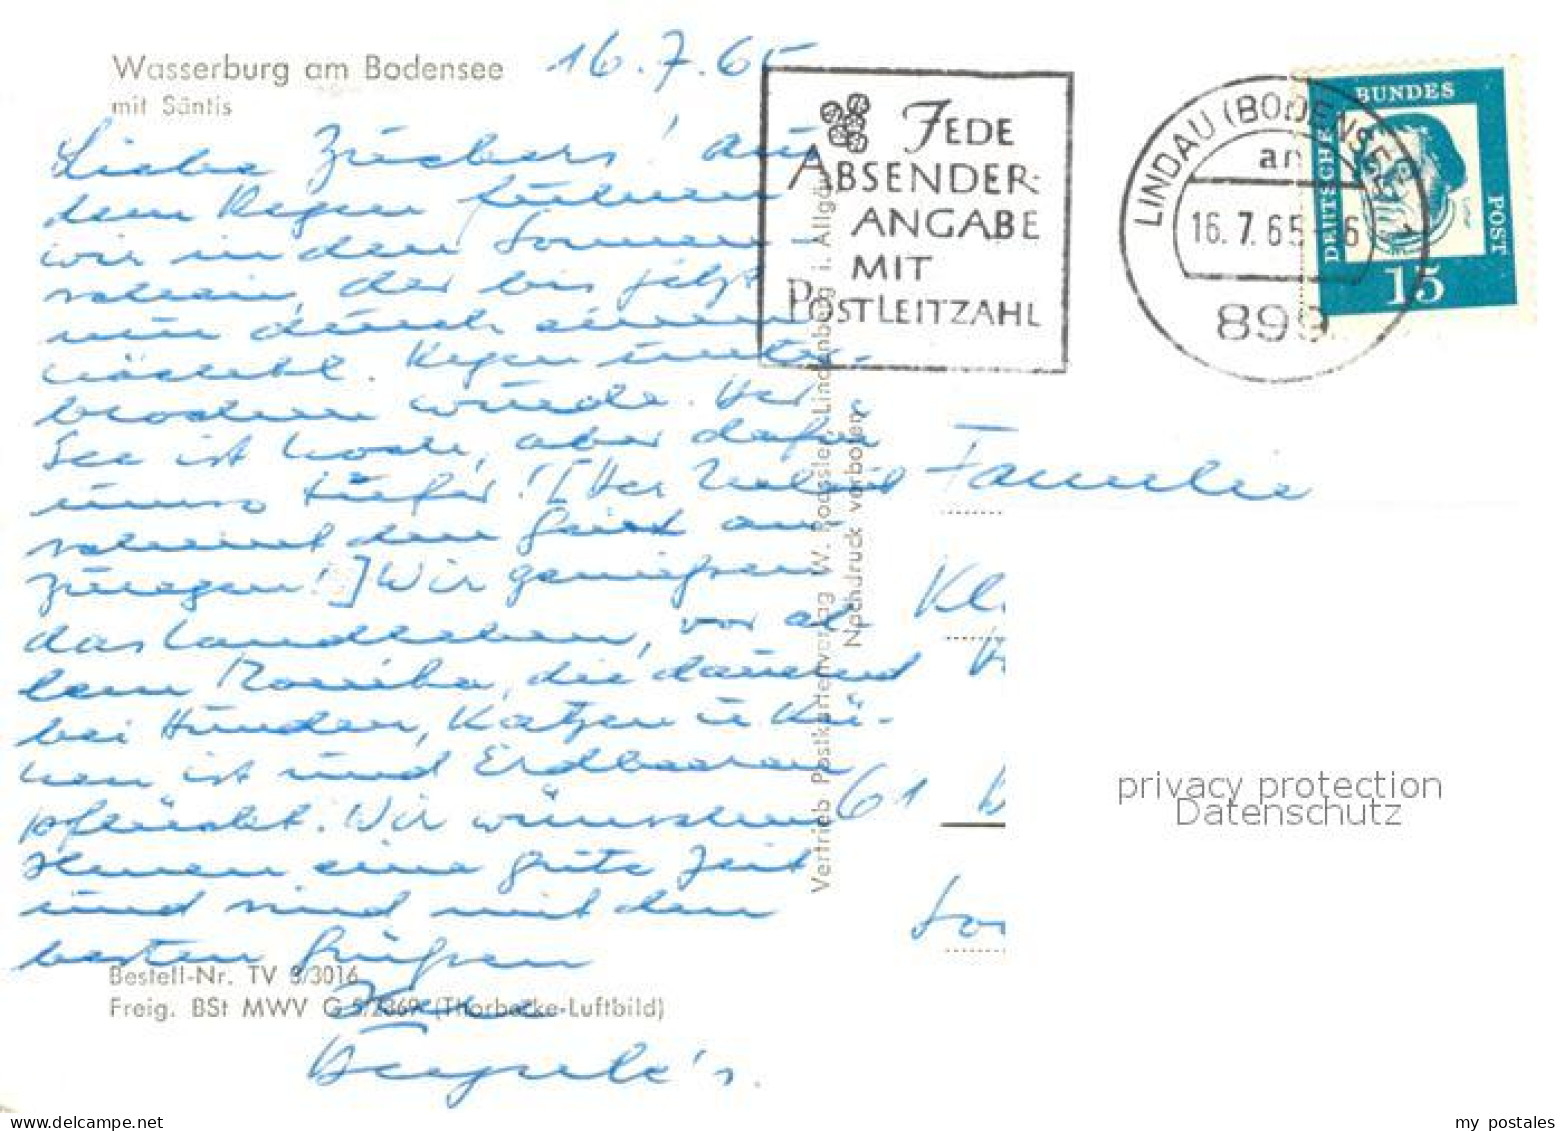 Wasserburg am Bodensee
mit Säntis
16.7.65
Liebe Zuckers! Aus
dem Regen fuhren
wir in den Sonnen-
schein, der bis jetzt
nur durch einen
nächtl. Regen unter-
brochen wurde. Der
See ist hoch, aber dafür
umso tiefer! [Der
scheint den Geist an-
zuregen!] Wir genießen
das Landleben, vor al-
lem Monika, die dauernd
bei Hunden, Katzen u Kü-
hen ist und Erdbeeren
pflückt. Wir wünschen
Ihnen eine gute Zeit
und sind mit den
besten Grüßen
Ihre
Bestell-Nr. TV 3/3016
Freig. BSt MWV G 5/2369 (Thorbecke-Luftbild)
Vertrieb Postkartenverlag W. Roessler, Lindenberg i. Allgäu
Nachdruck verboten
JEDE
ABSENDER-
ANGABE
MIT
POSTLEITZAHL
LINDAU (BODENSEE) 1
an
16.7.65-16
899
DEUTSCHE
BUNDES
POST
15
Familie
Kl
61
privacy protection
Datenschutz
my postales